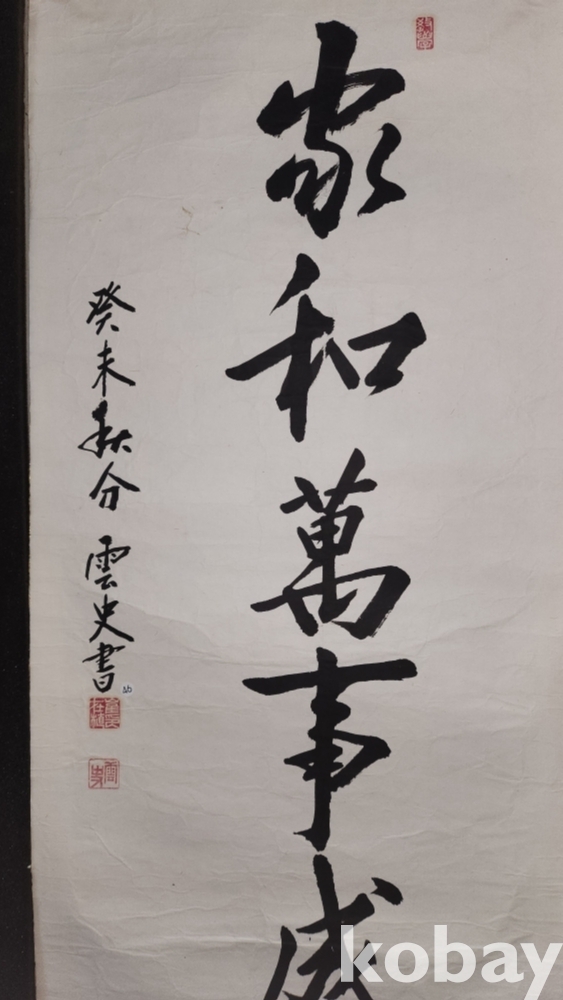 家和萬事成
癸未秋分 雲史書
kobay